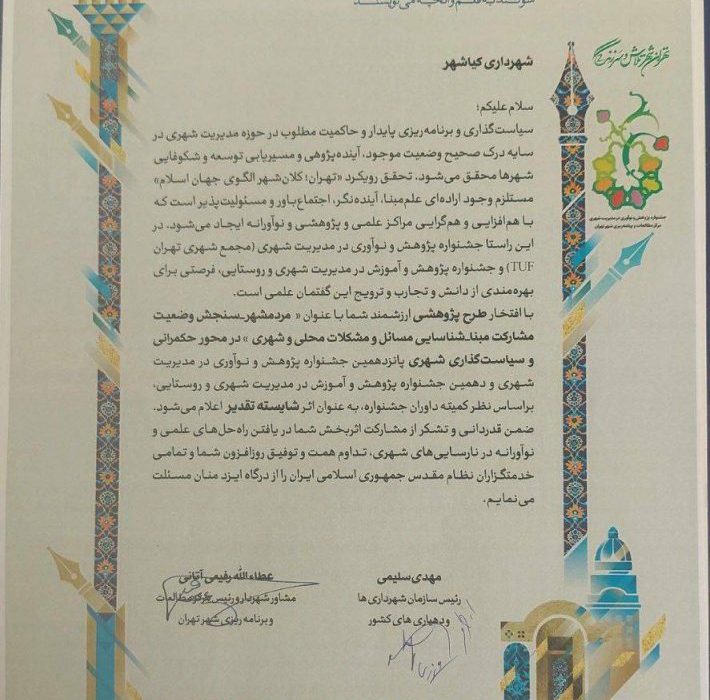 سوگند به قلم و آنچه می‌نویسند
تهران شهر تلاش و سرزندگی
جشنواره پژوهش و نوآوری در مدیریت شهری
مرکز مطالعات و برنامه‌ریزی شهر تهران
شهرداری کیاشهر
سلام علیکم؛
سیاست‌گذاری و برنامه‌ریزی پایدار و حاکمیت مطلوب در حوزه مدیریت شهری در
سایه درک صحیح وضعیت موجود، آینده‌پژوهی و مسیریابی توسعه و شکوفایی
شهرها محقق می‌شود. تحقق رویکرد «تهران؛ کلان‌شهر الگوی جهان اسلام»
مستلزم وجود اراده‌ای علم‌مبنا، آینده‌نگر، اجتماع‌باور و مسئولیت‌پذیر است که
با هم‌افزایی و هم‌گرایی مراکز علمی و پژوهشی و نوآورانه ایجاد می‌شود. در
این راستا جشنواره پژوهش و نوآوری در مدیریت شهری (مجمع شهری تهران
TUF) و جشنواره پژوهش و آموزش در مدیریت شهری و روستایی، فرصتی برای
بهره‌مندی از دانش و تجارب و ترویج این گفتمان علمی است.
با افتخار طرح پژوهشی ارزشمند شما با عنوان « مردمشهر_سنجش وضعیت
مشارکت مبنا_شناسایی مسائل و مشکلات محلی و شهری » در محور حکمرانی
و سیاست‌گذاری شهری پانزدهمین جشنواره پژوهش و نوآوری در مدیریت
شهری و دهمین جشنواره پژوهش و آموزش در مدیریت شهری و روستایی،
براساس نظر کمیته داوران جشنواره، به عنوان اثر شایسته تقدیر اعلام می‌شود.
ضمن قدردانی و تشکر از مشارکت اثربخش شما در یافتن راه‌حل‌های علمی و
نوآورانه در نارسایی‌های شهری، تداوم همت و توفیق روزافزون شما و تمامی
خدمتگزاران نظام مقدس جمهوری اسلامی ایران را از درگاه ایزد منان مسئلت
می‌نمایم.
مهدی سلیمی
رئیس سازمان شهرداری ها
و دهیاری های کشور
عطاءالله رفیعی آتانی
مشاور شهردار و رئیس مرکز مطالعات
و برنامه ریزی شهر تهران